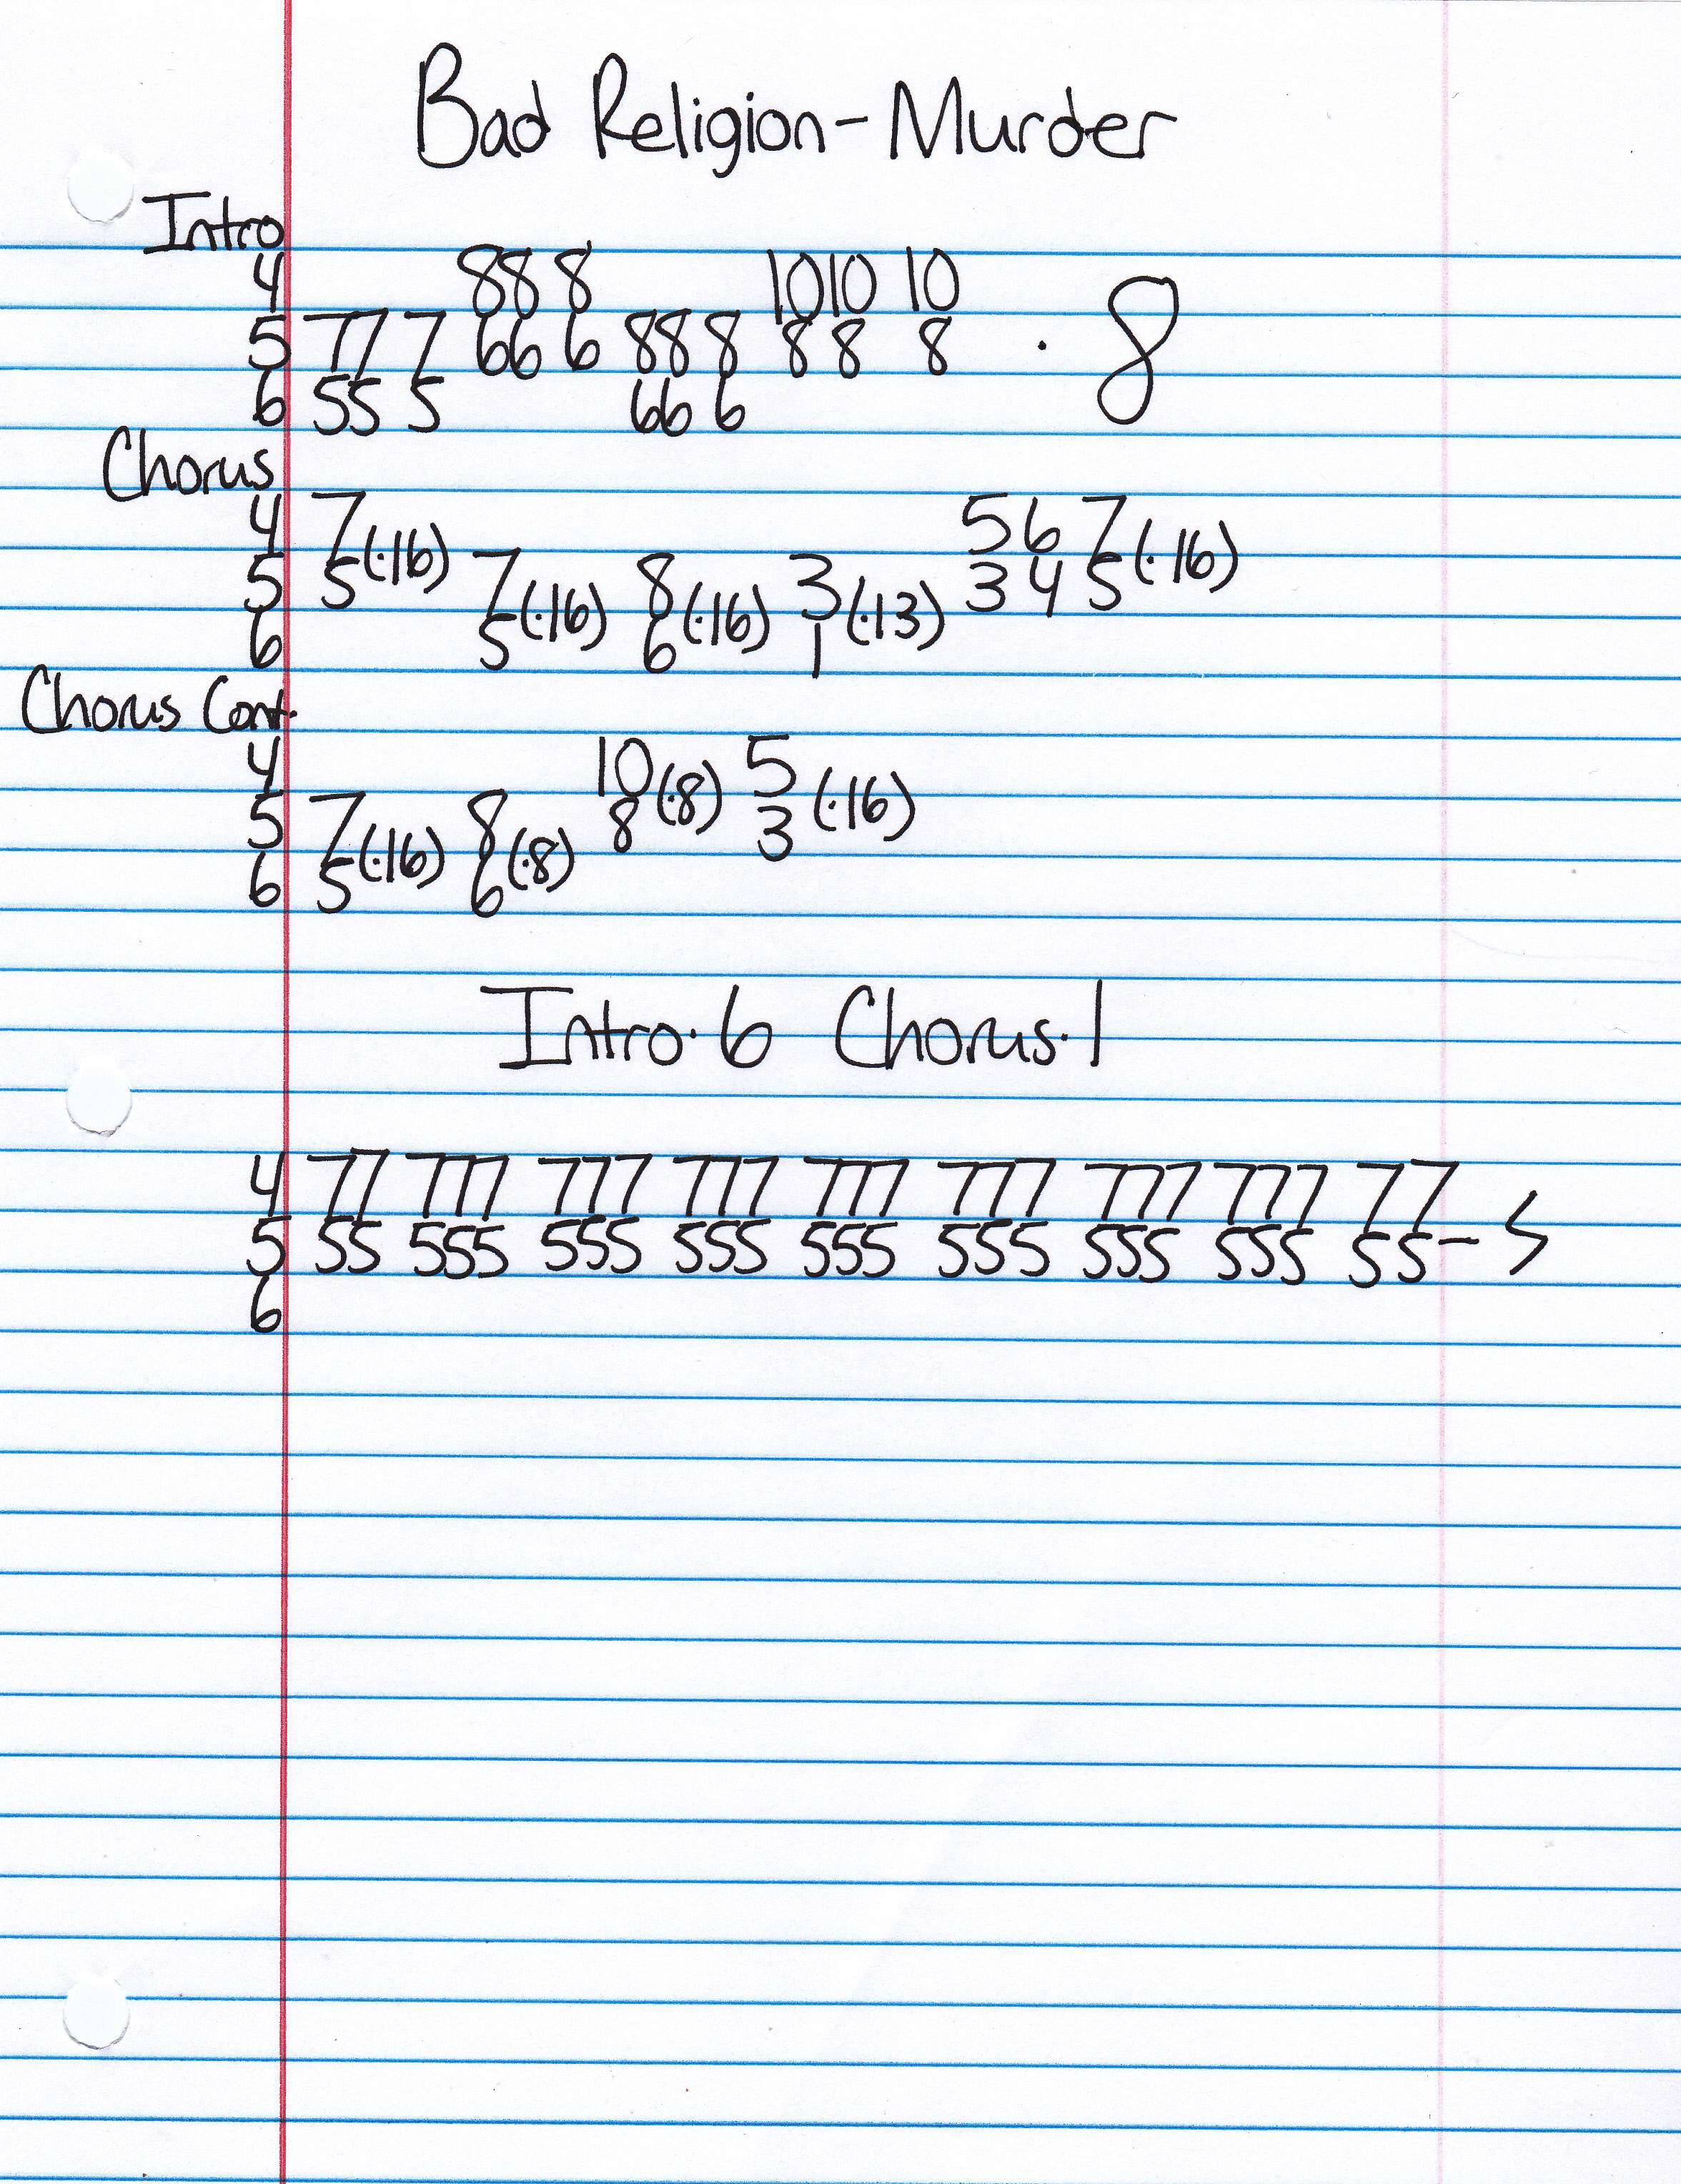 Bad Religion-Murder
Intro
4 88 8 1010 10
5 77 7 66 6 88 8 8 8 8 · 8
6 55 5 66 6
Chorus
4 7 5 6 7
5 5(·16) 7 8 3 3 4 5(·16)
6 5(·16) 6(·16) 1(·13)
Chorus Cont.
4 10 5
5 7 8 8(·8) 3(·16)
6 5(·16) 6(·8)
Intro·6 Chorus·1
4 77 777 777 777 777 777 777 777 77
5 55 555 555 555 555 555 555 555 55-
6